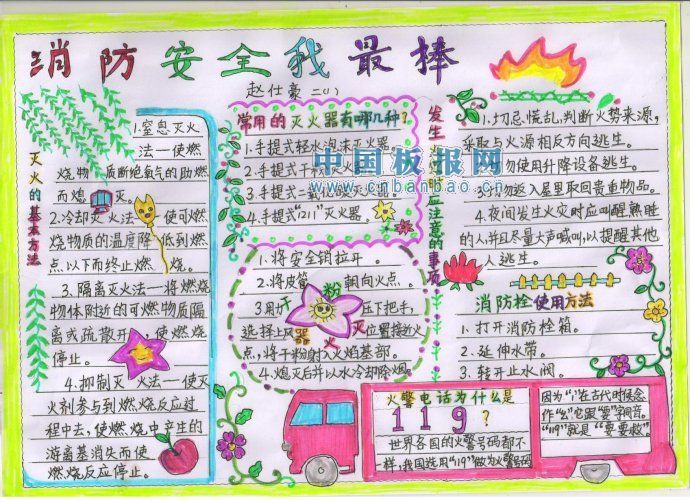 消防安全我最棒
赵仕豪 二(1)
灭火的基本方法
1.窒息灭火
法一使燃
烧物质断绝氧气的助燃
而熄灭。
2.冷却灭火法一使可燃
烧物质的温度降低到燃
点以下而终止燃烧。
3.隔离灭火法一将燃烧
物体附近的可燃物质隔
离或疏散开,使燃烧
停止。
4.抑制灭火法一使灭
火剂参与到燃烧反应过
程中去,使燃烧中产生的
游离基消失而使
燃烧反应停止。
常用的灭火器有哪几种?
1.手提式轻水泡沫灭火器。
2.手提式干粉灭火器。
3.手提式二氧化碳灭火器。
4.手提式"1211"灭火器。
中国板报网
www.cnbanbao.cn
干粉灭火器
1.将安全销拉开。
2.将皮管朝向火点。
3.用力压下把手,
选择上风位置接近火
点,将干粉射入火焰基部。
4.熄灭后并以水冷却除烟。
发生
应注意的事项
1.切忌慌乱,判断火势来源,
采取与火源相反方向逃生。
勿使用升降设备逃生。
勿返入屋里取回贵重物品。
4.夜间发生火灾时应叫醒熟睡
的人,并且尽量大声喊叫,以提醒其他
人逃生。
消防栓使用方法
1.打开消防栓箱。
2.延伸水带。
3.转开止水阀。
火警电话为什么是
119?
世界各国的火警号码都不一
样,我国选用"119"做为火警号码
因为"1"在古代时候念
作"幺"它跟"要"字同音。
"119"就是"要要救"。